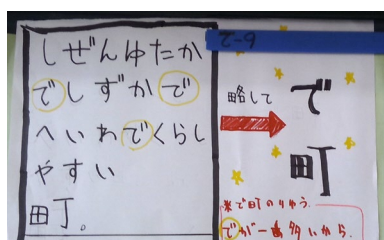 しぜんゆたか
でしずかで
へいわでくらし
やすい
町。
2-9
略して
で
町
※で町のりゆう.
でが一番多いから.